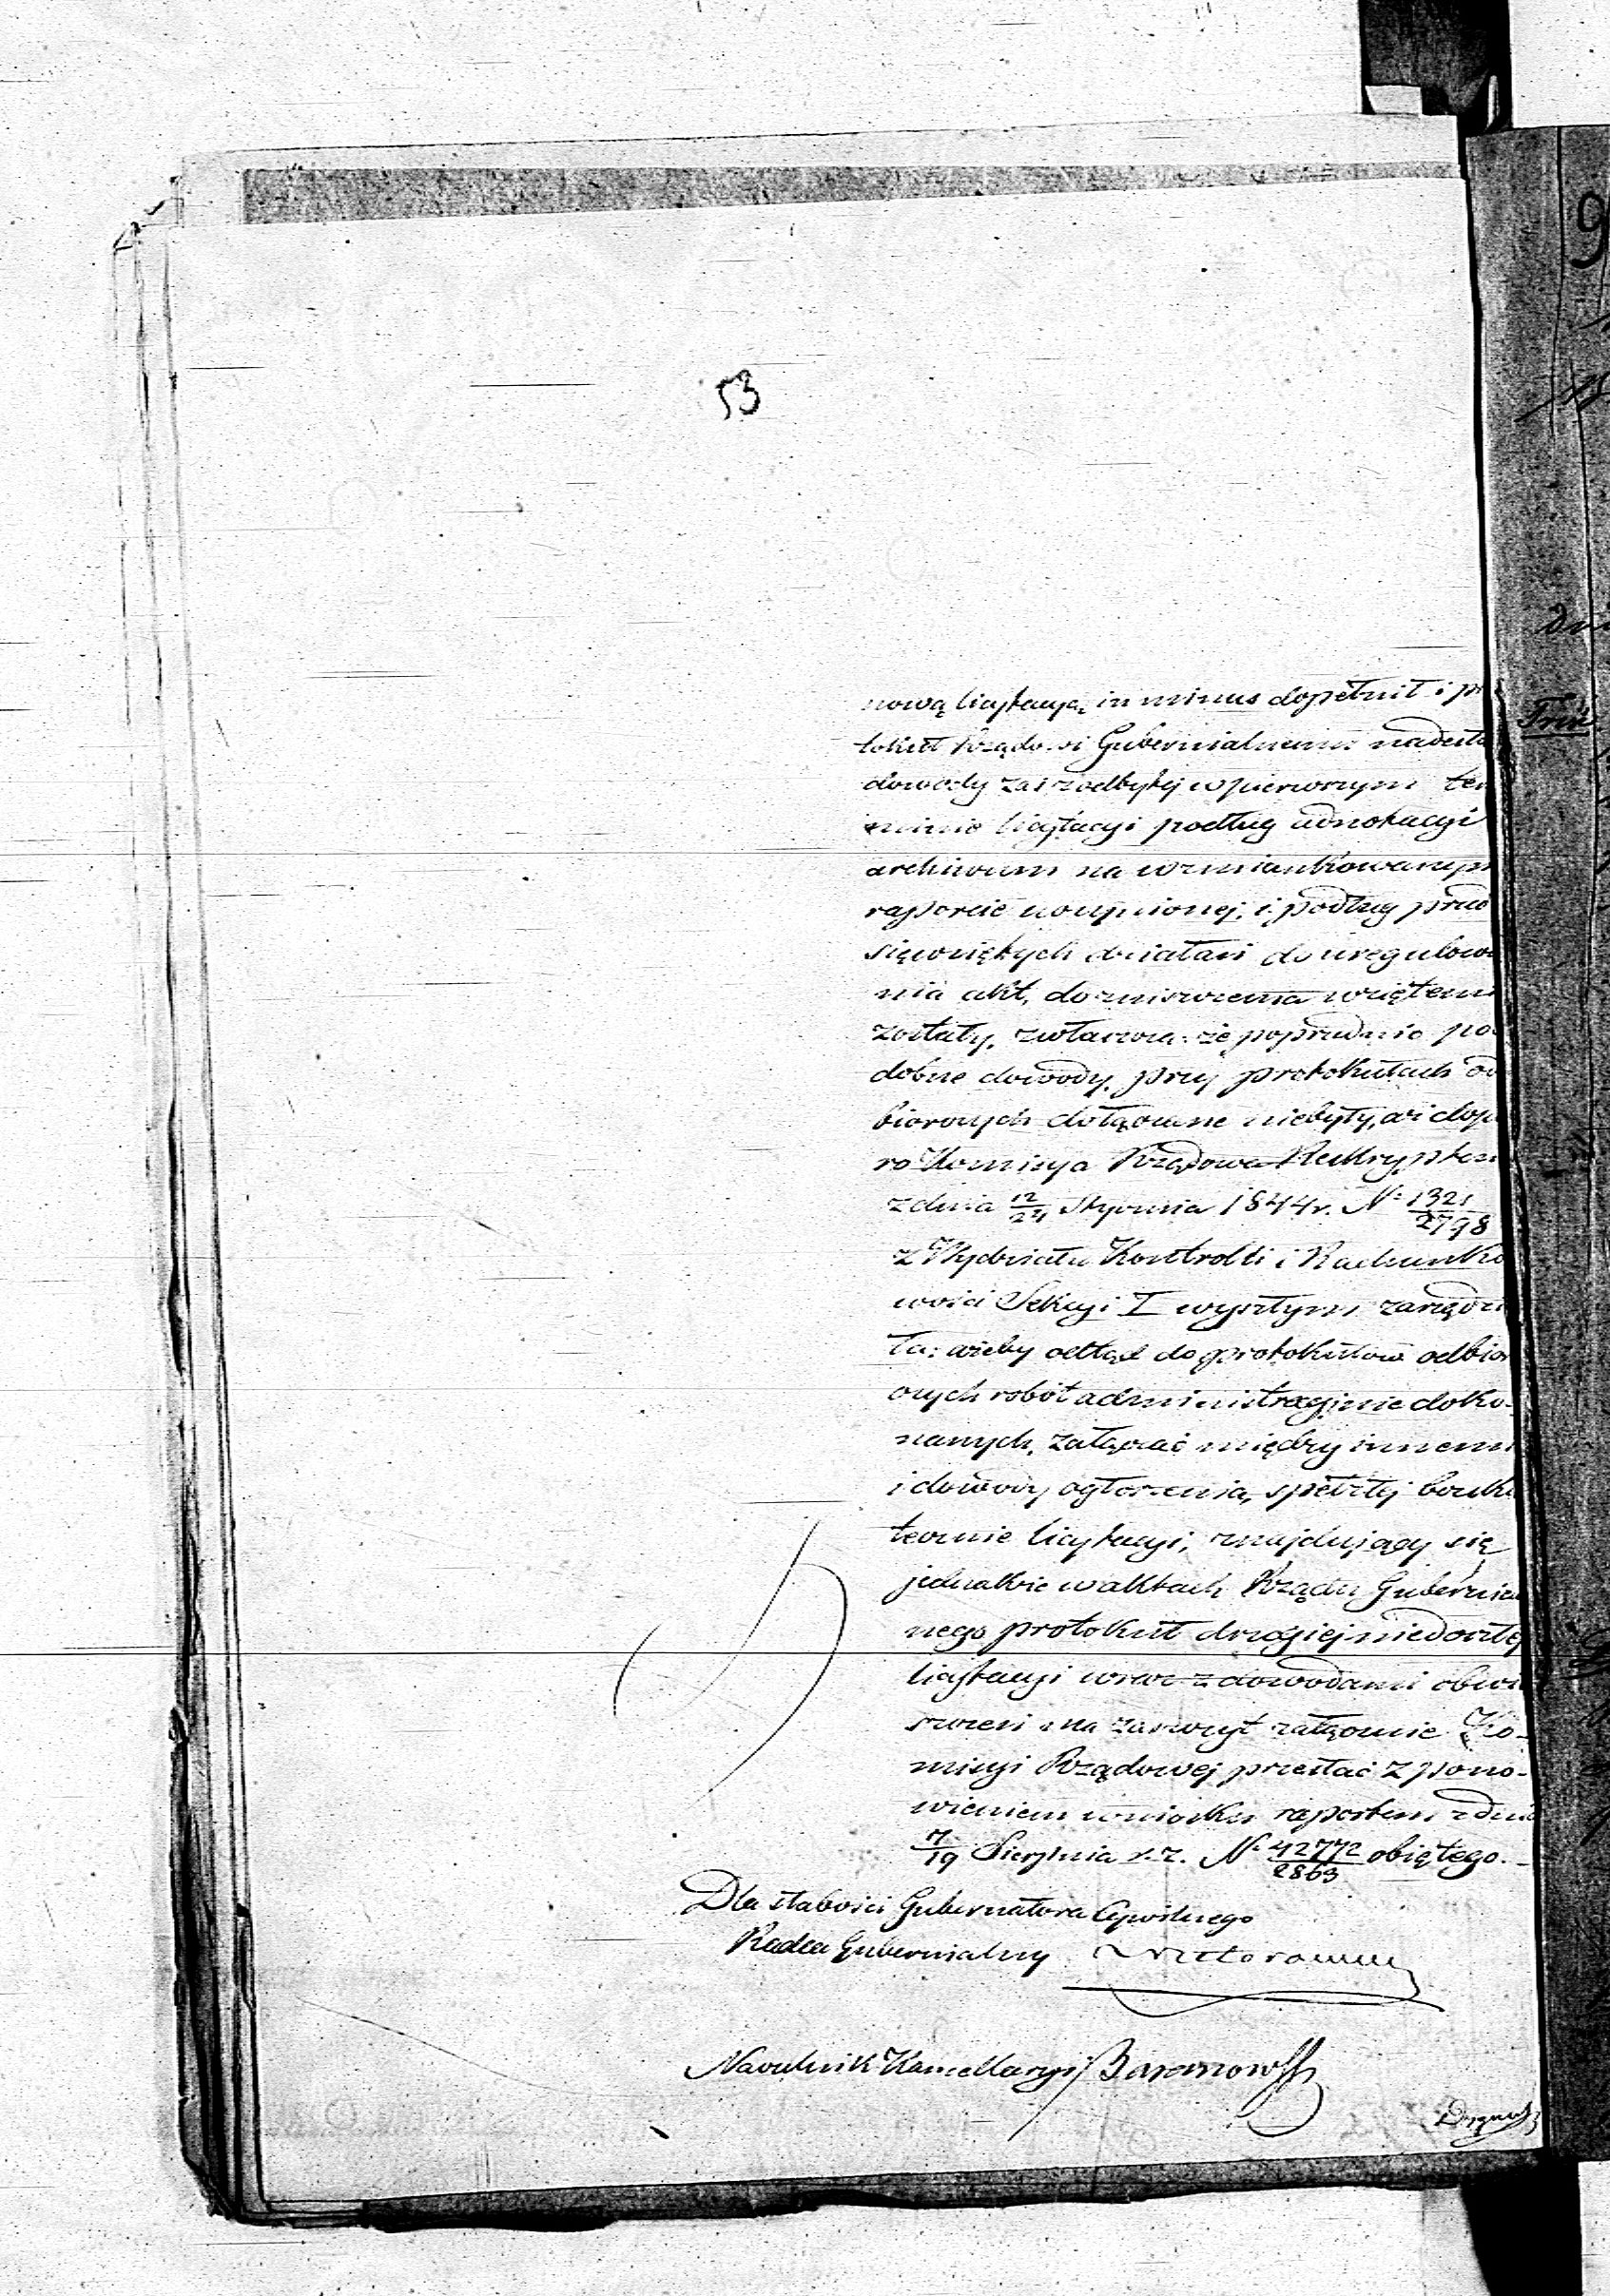 53
nową licytacyą in minus dopełnił i p
tokuł Rządowi Gubernialnemu nadesła
dowody zaś z odbytej w pierwszym ter
minie licytacyi podług adnotacyi
archiwum na wzmiankowanym
raporcie i podług przed
sięwziętych działań do uregulowa
nia akt, do zniszczenia wziętemi
zostały, zwłaszcza że poprzednio po
dobne dowody, przy protokułach od
biorczych dołączane niebyły, aż dopi
ro Kommisya Rządowa Reskryptem
z dnia 12/24 Stycznia 1844 r. Nº 1321/2798
z Wydziału Kontrolli i Rachunko
wości Sekcyi I wyszłym zarządzi
ła: ażeby odtąd do protokułów odbior
czych robót administracyjnie doko-
nanych, załączać między innemi
i dowody ogłoszenia, spełzłej bezsku
tecznie licytacyi, znajdujący się
jednakże w aktach Rządu Gubernial
nego protokuł drugiej niedoszłej
licytacyi wraz z dowodami obwie
szczeń ma zaszczyt załącznie Ko-
missyi Rządowej przesłać z pono-
wieniem wniosku raportem z dnia
7/19 Sierpnia r. z. Nº 42772/2863 objętego. -
Dla słabości Gubernatora Cywilnego
Radca Gubernialny
Naczelnik Kancellaryi